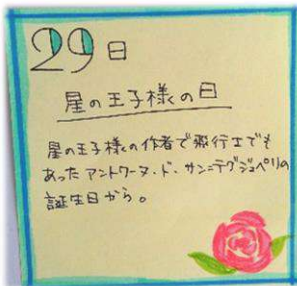 29日
星の王子様の日
星の王子様の作者で飛行士でも
あったアントワーヌ・ド・サン=テグジュペリの
誕生日から。